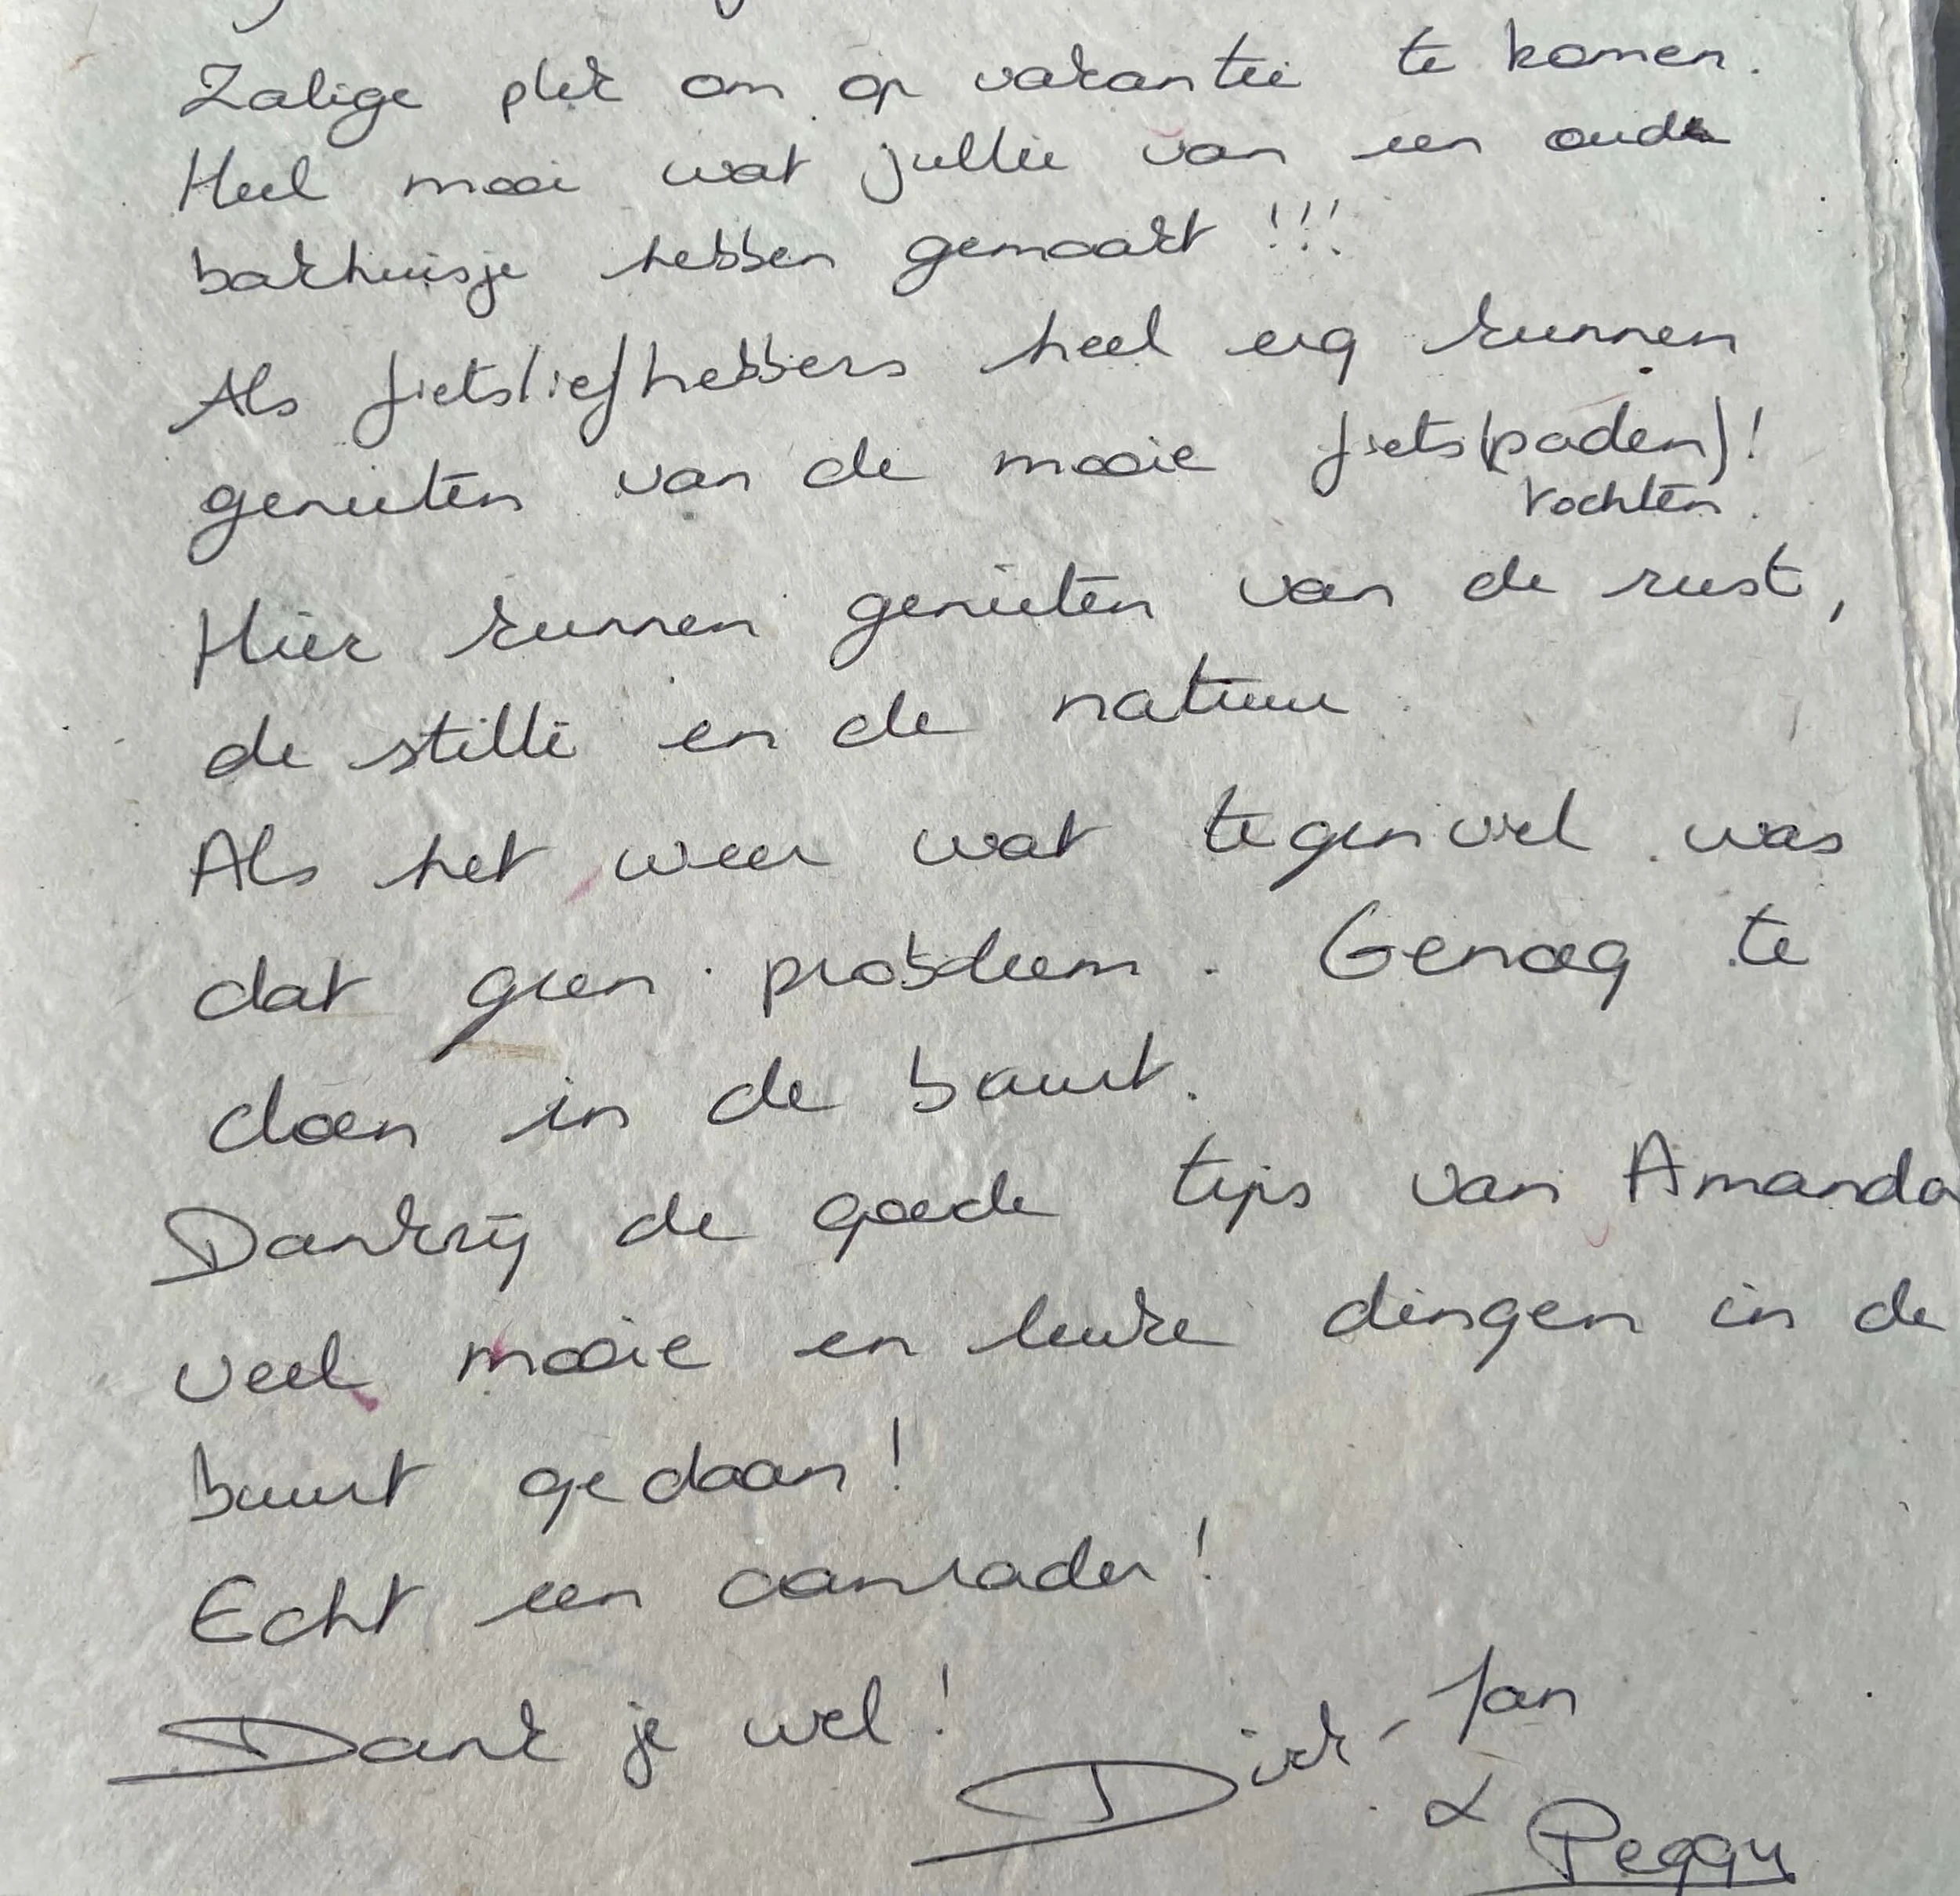 Zalige plek om op vakantie te komen.
Heel mooi wat jullie van een oude
bakhuisje hebben gemaakt !!!
Als fietsliefhebbers heel erg kunnen
genieten van de mooie fiets(paden)!
tochten.
Hier kunnen genieten van de rust,
de stilte en de natuur.
Als het weer wat tegenviel was
dat geen probleem. Genoeg te
doen in de buurt.
Dankzij de goede tips van Amanda
veel mooie en leuke dingen in de
buurt gedaan!
Echt een aanrader!
Dank je wel!
Dirk-Jan
&
Peggy